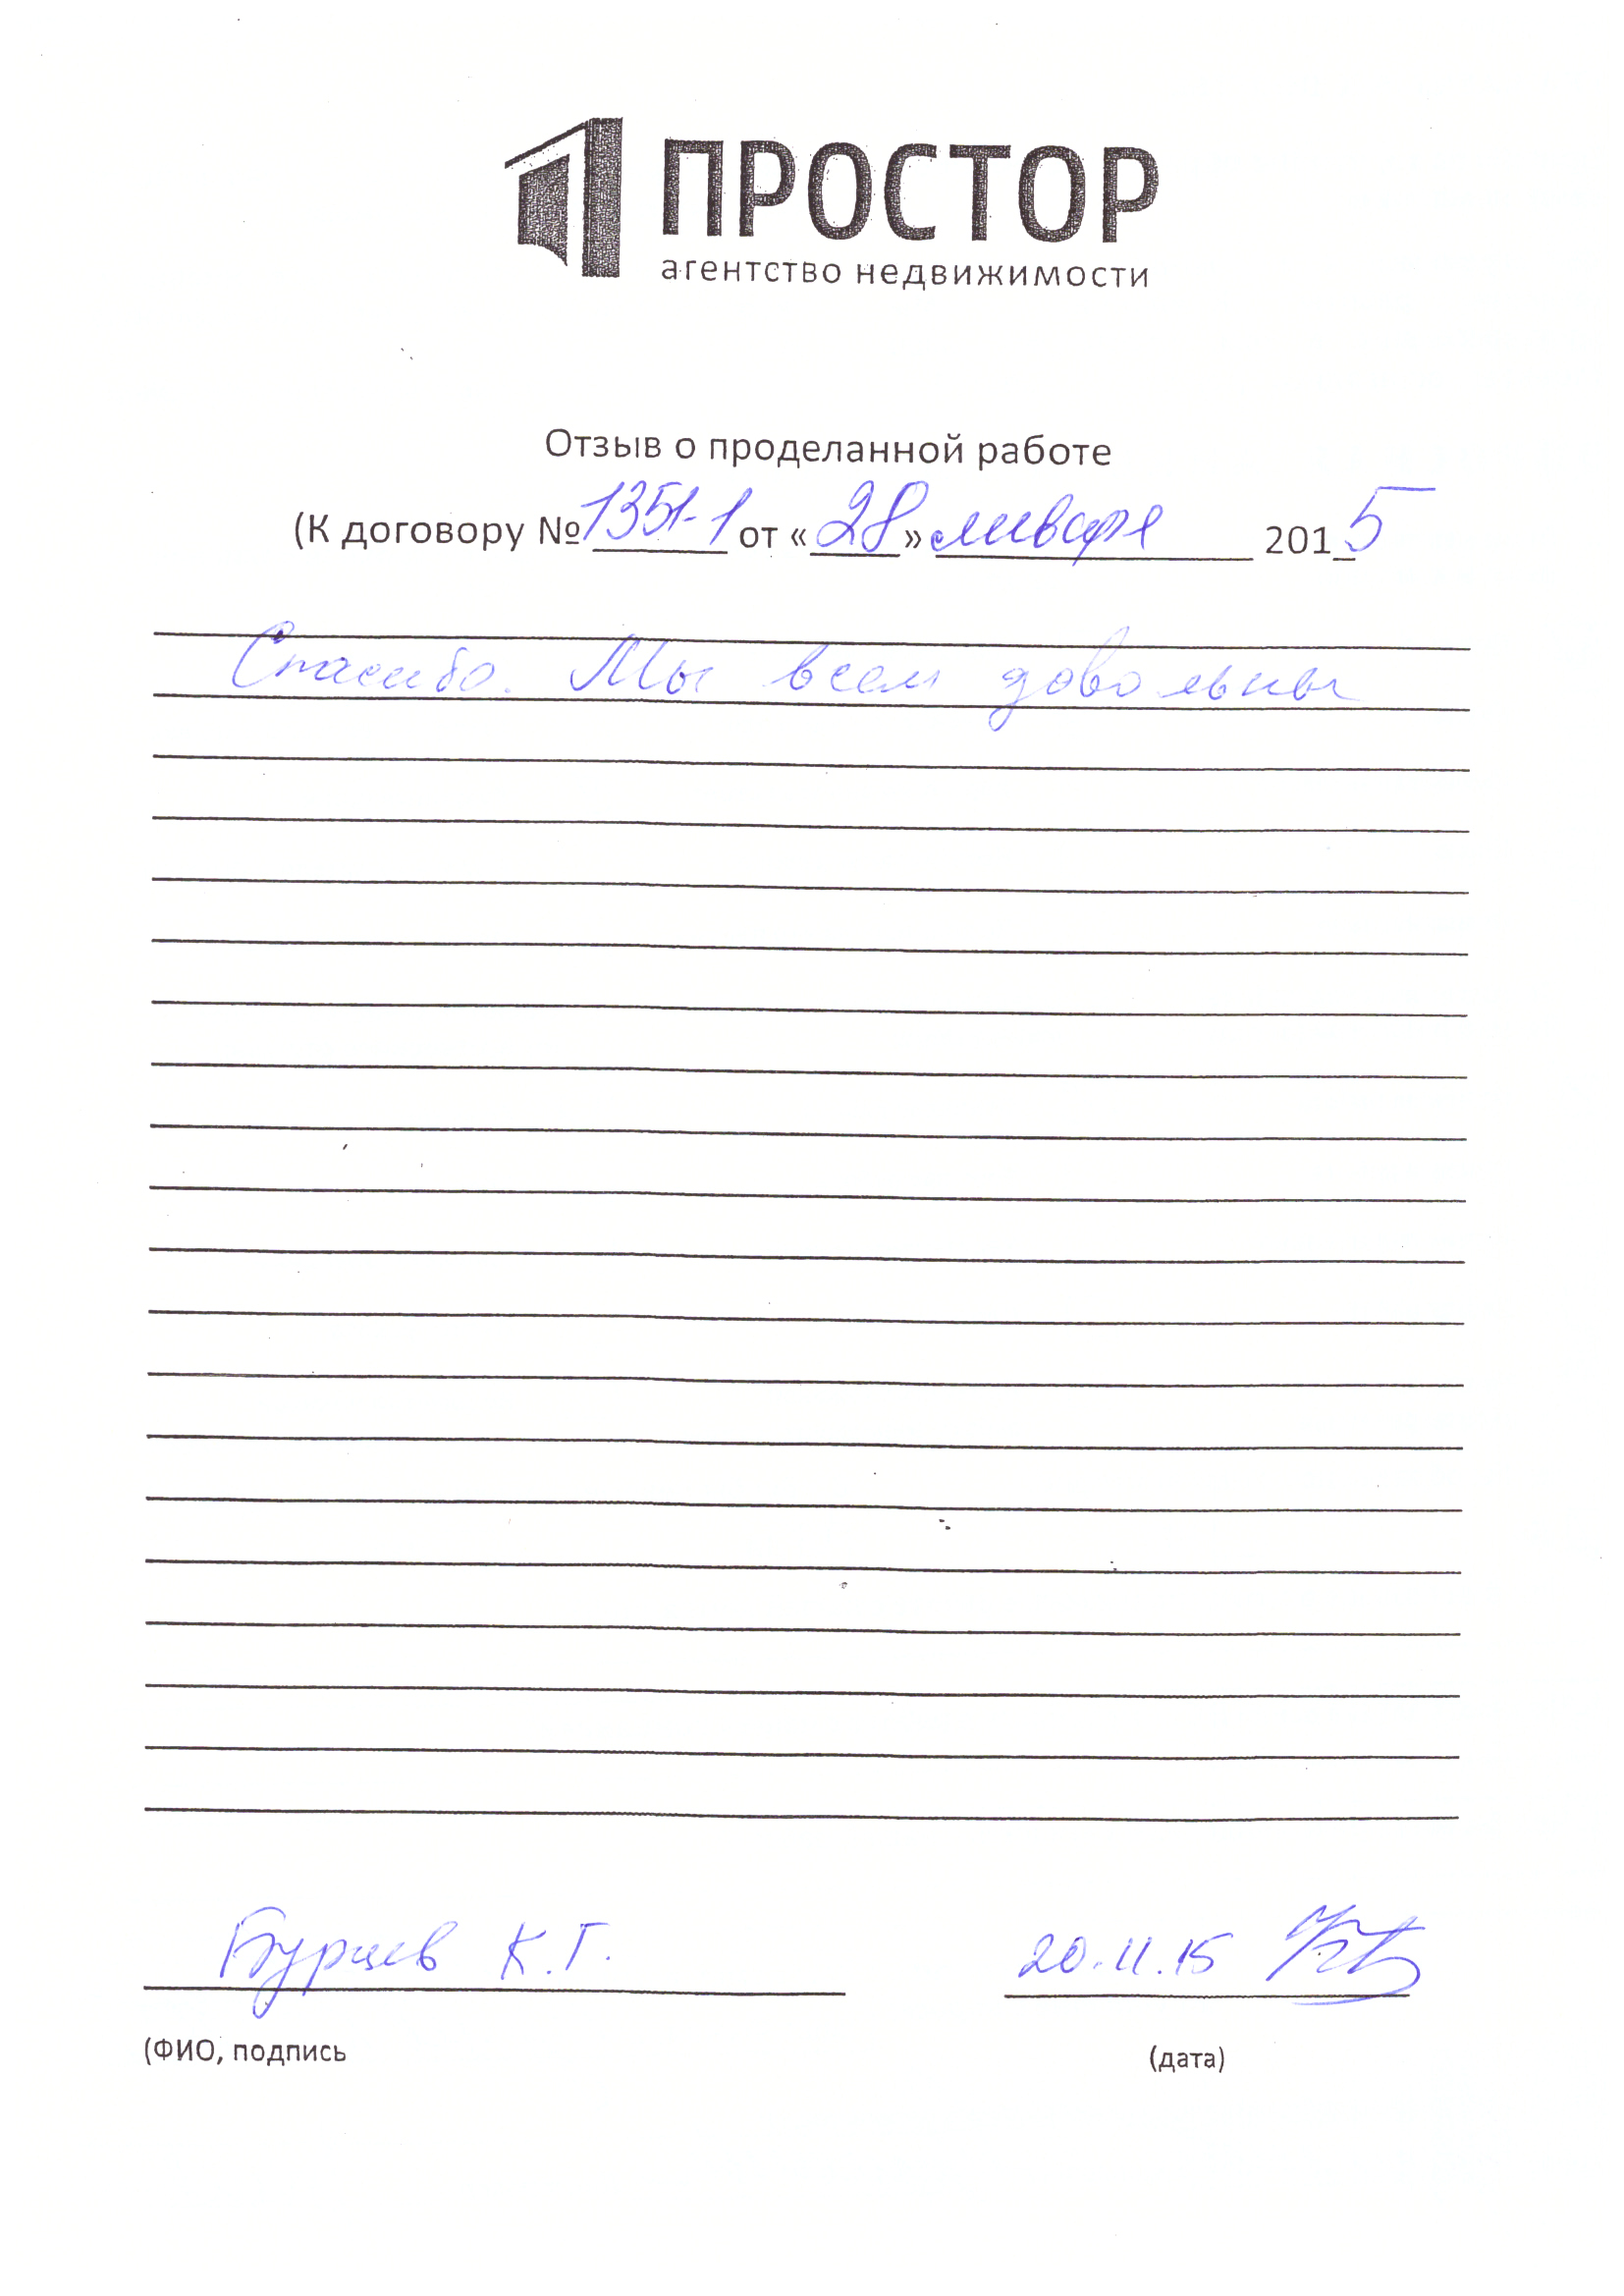 ПРОСТОР
агентство недвижимости
Отзыв о проделанной работе
(К договору № 1351-1 от «28» января 2015
Спасибо. Мы всем довольны
Бурцев К.Г. 20.11.15
(ФИО, подпись (дата)